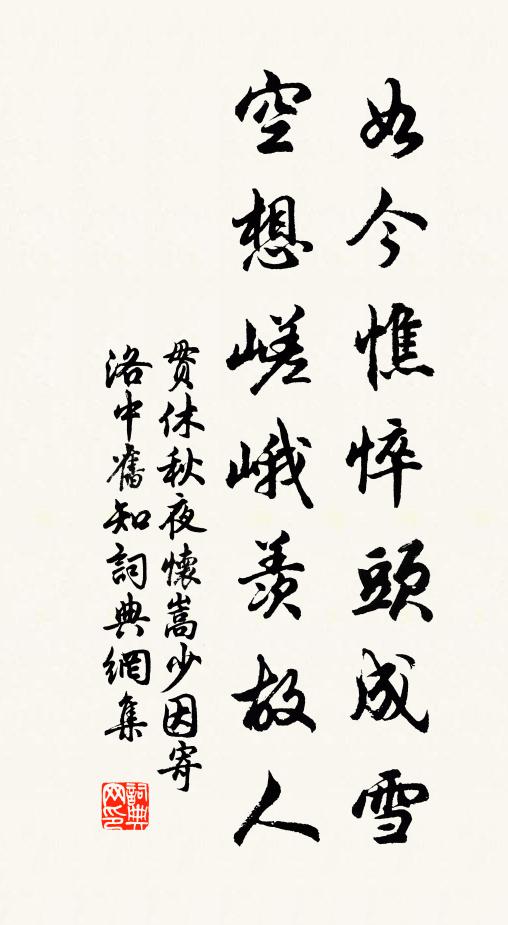 如今憔悴頭成雪
空想嵯峨羨故人
貫休秋夜懷嵩少因寄
洛中舊知詞典網集
詞典网印